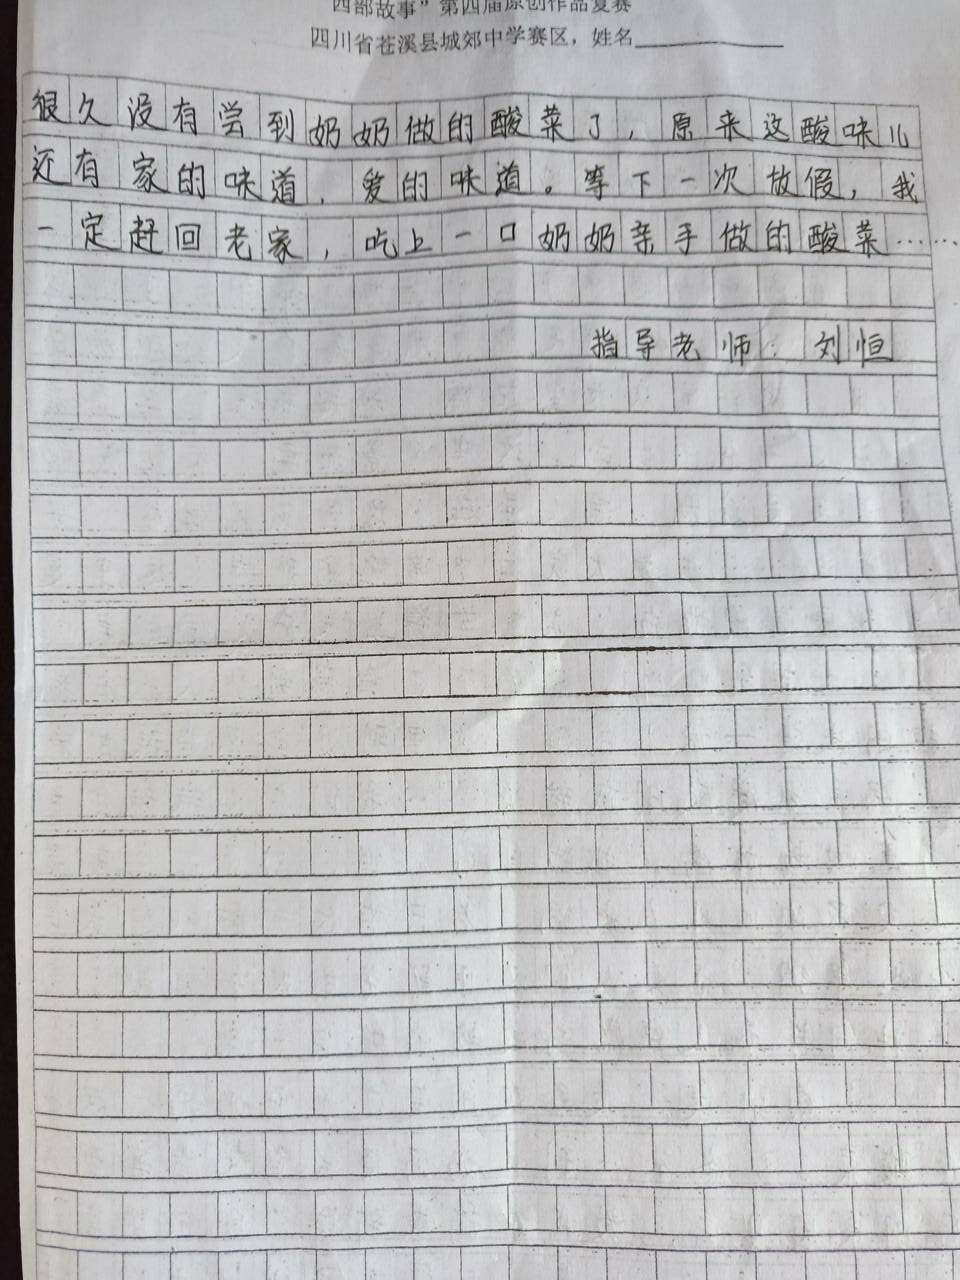 西部故事”第四届原创作品复赛
四川省苍溪县城郊中学赛区，姓名
很久没有尝到奶奶做的酸菜了，原来这酸味儿
还有家的味道，爱的味道。等下一次放假，我
一定赶回老家，吃上一口奶奶亲手做的酸菜……
指导老师：刘恒